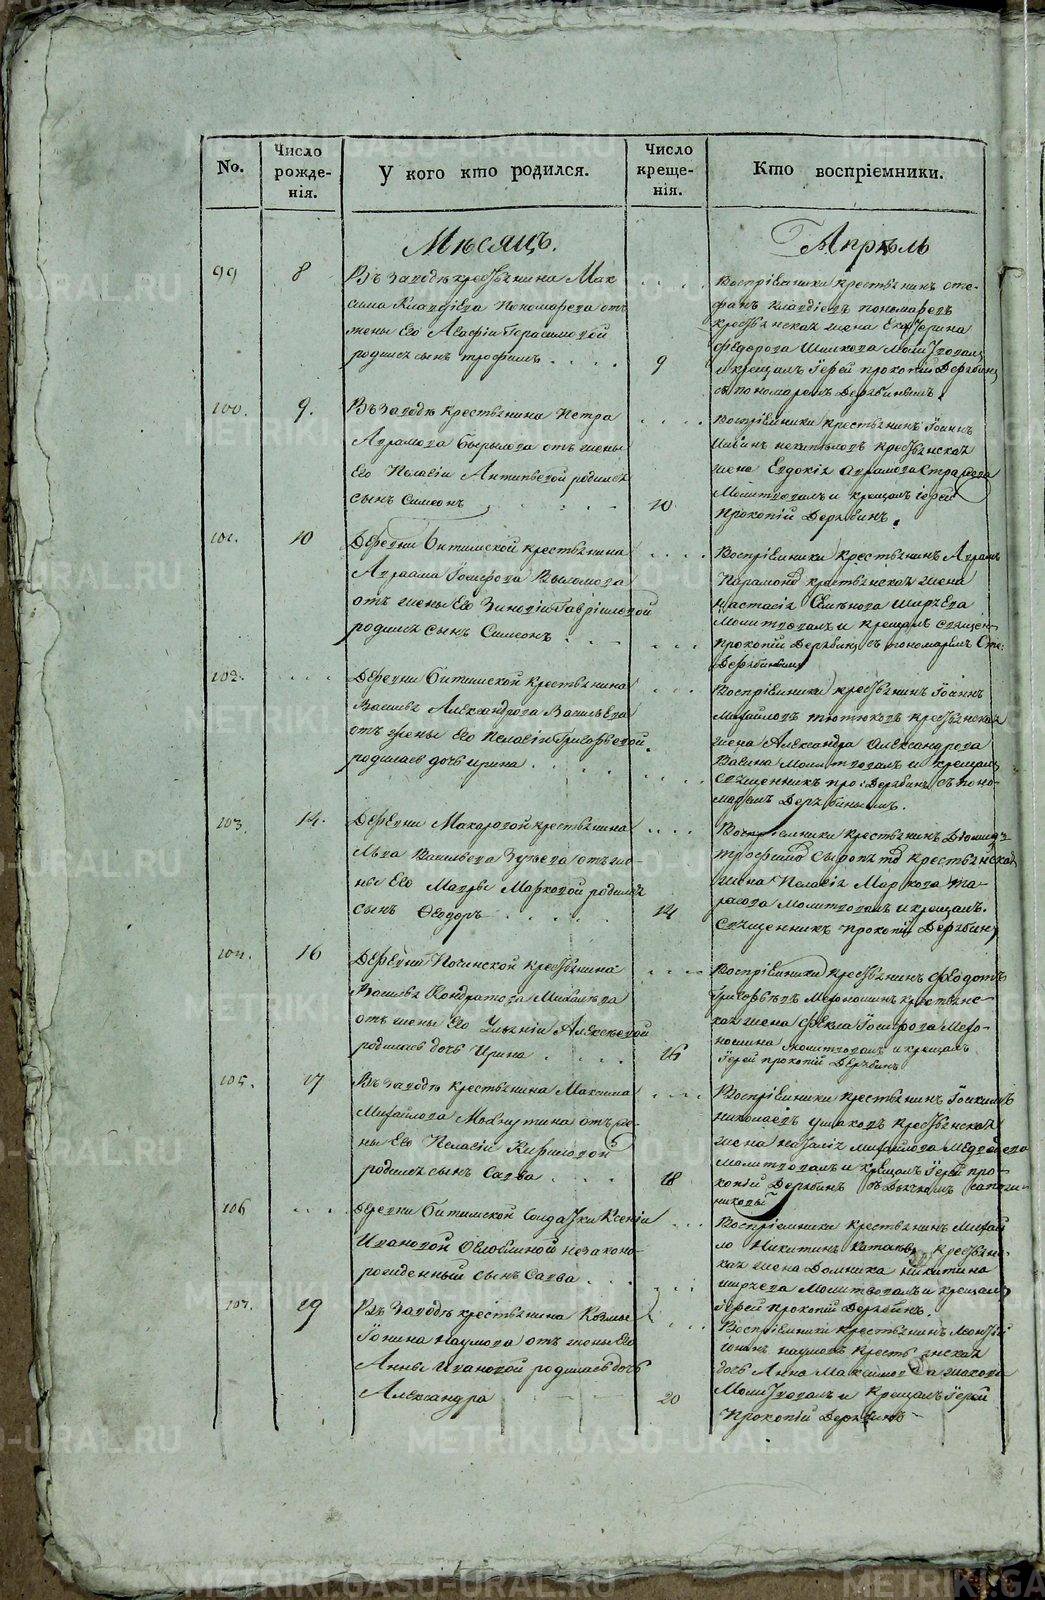 No.
Число рожде-нія.
У кого кто родился.
Число креще-нія.
Кто воспріемники.
Мѣсяцъ.
Апрѣль
99
8
Въ заводѣ крестьянина Мак
сима Клавдіева Пономарева отъ
жены Его Агафіи Герасимовой
родился сынъ трофимъ
9
Воспріемники крестьянинъ сте-
фанъ клавдіевъ пономаревъ
крестьянская жена Екатерина
федорова молитвовалъ
и крещалъ Іерей прокопій Дерябинъ
съ пономаремъ Дерябинымъ
100.
9.
Въ заводѣ крестьянина Петра
отъ жены
Его Пелагіи Антипьевой родился
сынъ Симеонъ
10
Воспріемники крестьянинъ Іоаннъ
крестьянская
жена Евдокія
Молитвовалъ и крещалъ іерей
Прокопій Дерябинъ.
101.
10
Деревни Битимской крестьянина
Авраама Іосифова
отъ жены Его Зиновіи Гавріиловой
родился сынъ Симеонъ
Воспріемники крестьянинъ
крестьянская жена
настасія Семенова Ширяева
Молитвовалъ и крещалъ священ-
Прокопій Дерябинъ съ пономаремъ Сте:
Дерябинымъ
102.
Деревни Битимской крестьянина
Василья Александрова Васильева
отъ жены Его Пелагіи Григорьевой.
родилась дочь ирина
Воспріемники крестьянинъ Іоаннъ
Михайловъ тютюковъ крестьянская
жена Александра Александрова
Молитвовалъ и крещалъ
священникъ про: Дерябинъ съ поно-
маремъ Дерябинымъ.
103.
14.
Деревни Макаровой крестьянина
Льва Васильева Зуева отъ же-
ны Его Мавры Марковой родился
сынъ Ѳеодоръ
14
Воспріемники крестьянинъ
трофимъ крестьянская
жена Пелагія Маркова та-
расова Молитвовалъ и крещалъ.
священникъ Прокопій Дерябинъ
104.
16
Деревни Починской крестьянина
Василья Кондратова Михалева
отъ жены Его Ульяніи Алексѣевой
родилась дочь Ирина
16
Воспріемники крестьянинъ федотъ
Григорьевъ Мезенинъ крестьянс-
кая жена фекла Іосифова
молитвовалъ и крещалъ
Іерей прокопій Дерябинъ
105.
17
Въ заводѣ крестьянина Максима
Михайлова отъ же-
ны Его Пелагіи Кириловой
родился сынъ Савва
18
Воспріемники крестьянинъ Іоакимъ
николаевъ ушаковъ крестьянская
жена наталія михайлова медведева
молитвовалъ и крещалъ Іерей про-
копій Дерябинъ съ Дьячкомъ сапож-
никовымъ
106
Деревни Битимской солдатки Ксеніи
Ивановой незаконо-
рожденный сынъ Савва
Воспріемники крестьянинъ Михай
ло Никитинъ крестьянс-
кая жена Домника никитина
ширяева Молитвовалъ и крещалъ
Іерей прокопій Дерябинъ.
107.
19
Въ заводѣ крестьянина Козмы
Іонина наумова отъ жены Его
Анны Ивановой родилась дочь
Александра
20
Воспріемники крестьянинъ Леонтій
іонинъ наумовъ крестьянская
дочь Анна Максимова
Молитвовалъ и Крещалъ Іерей
Прокопій Дерябинъ
METRIKI.GASO-URAL.RU